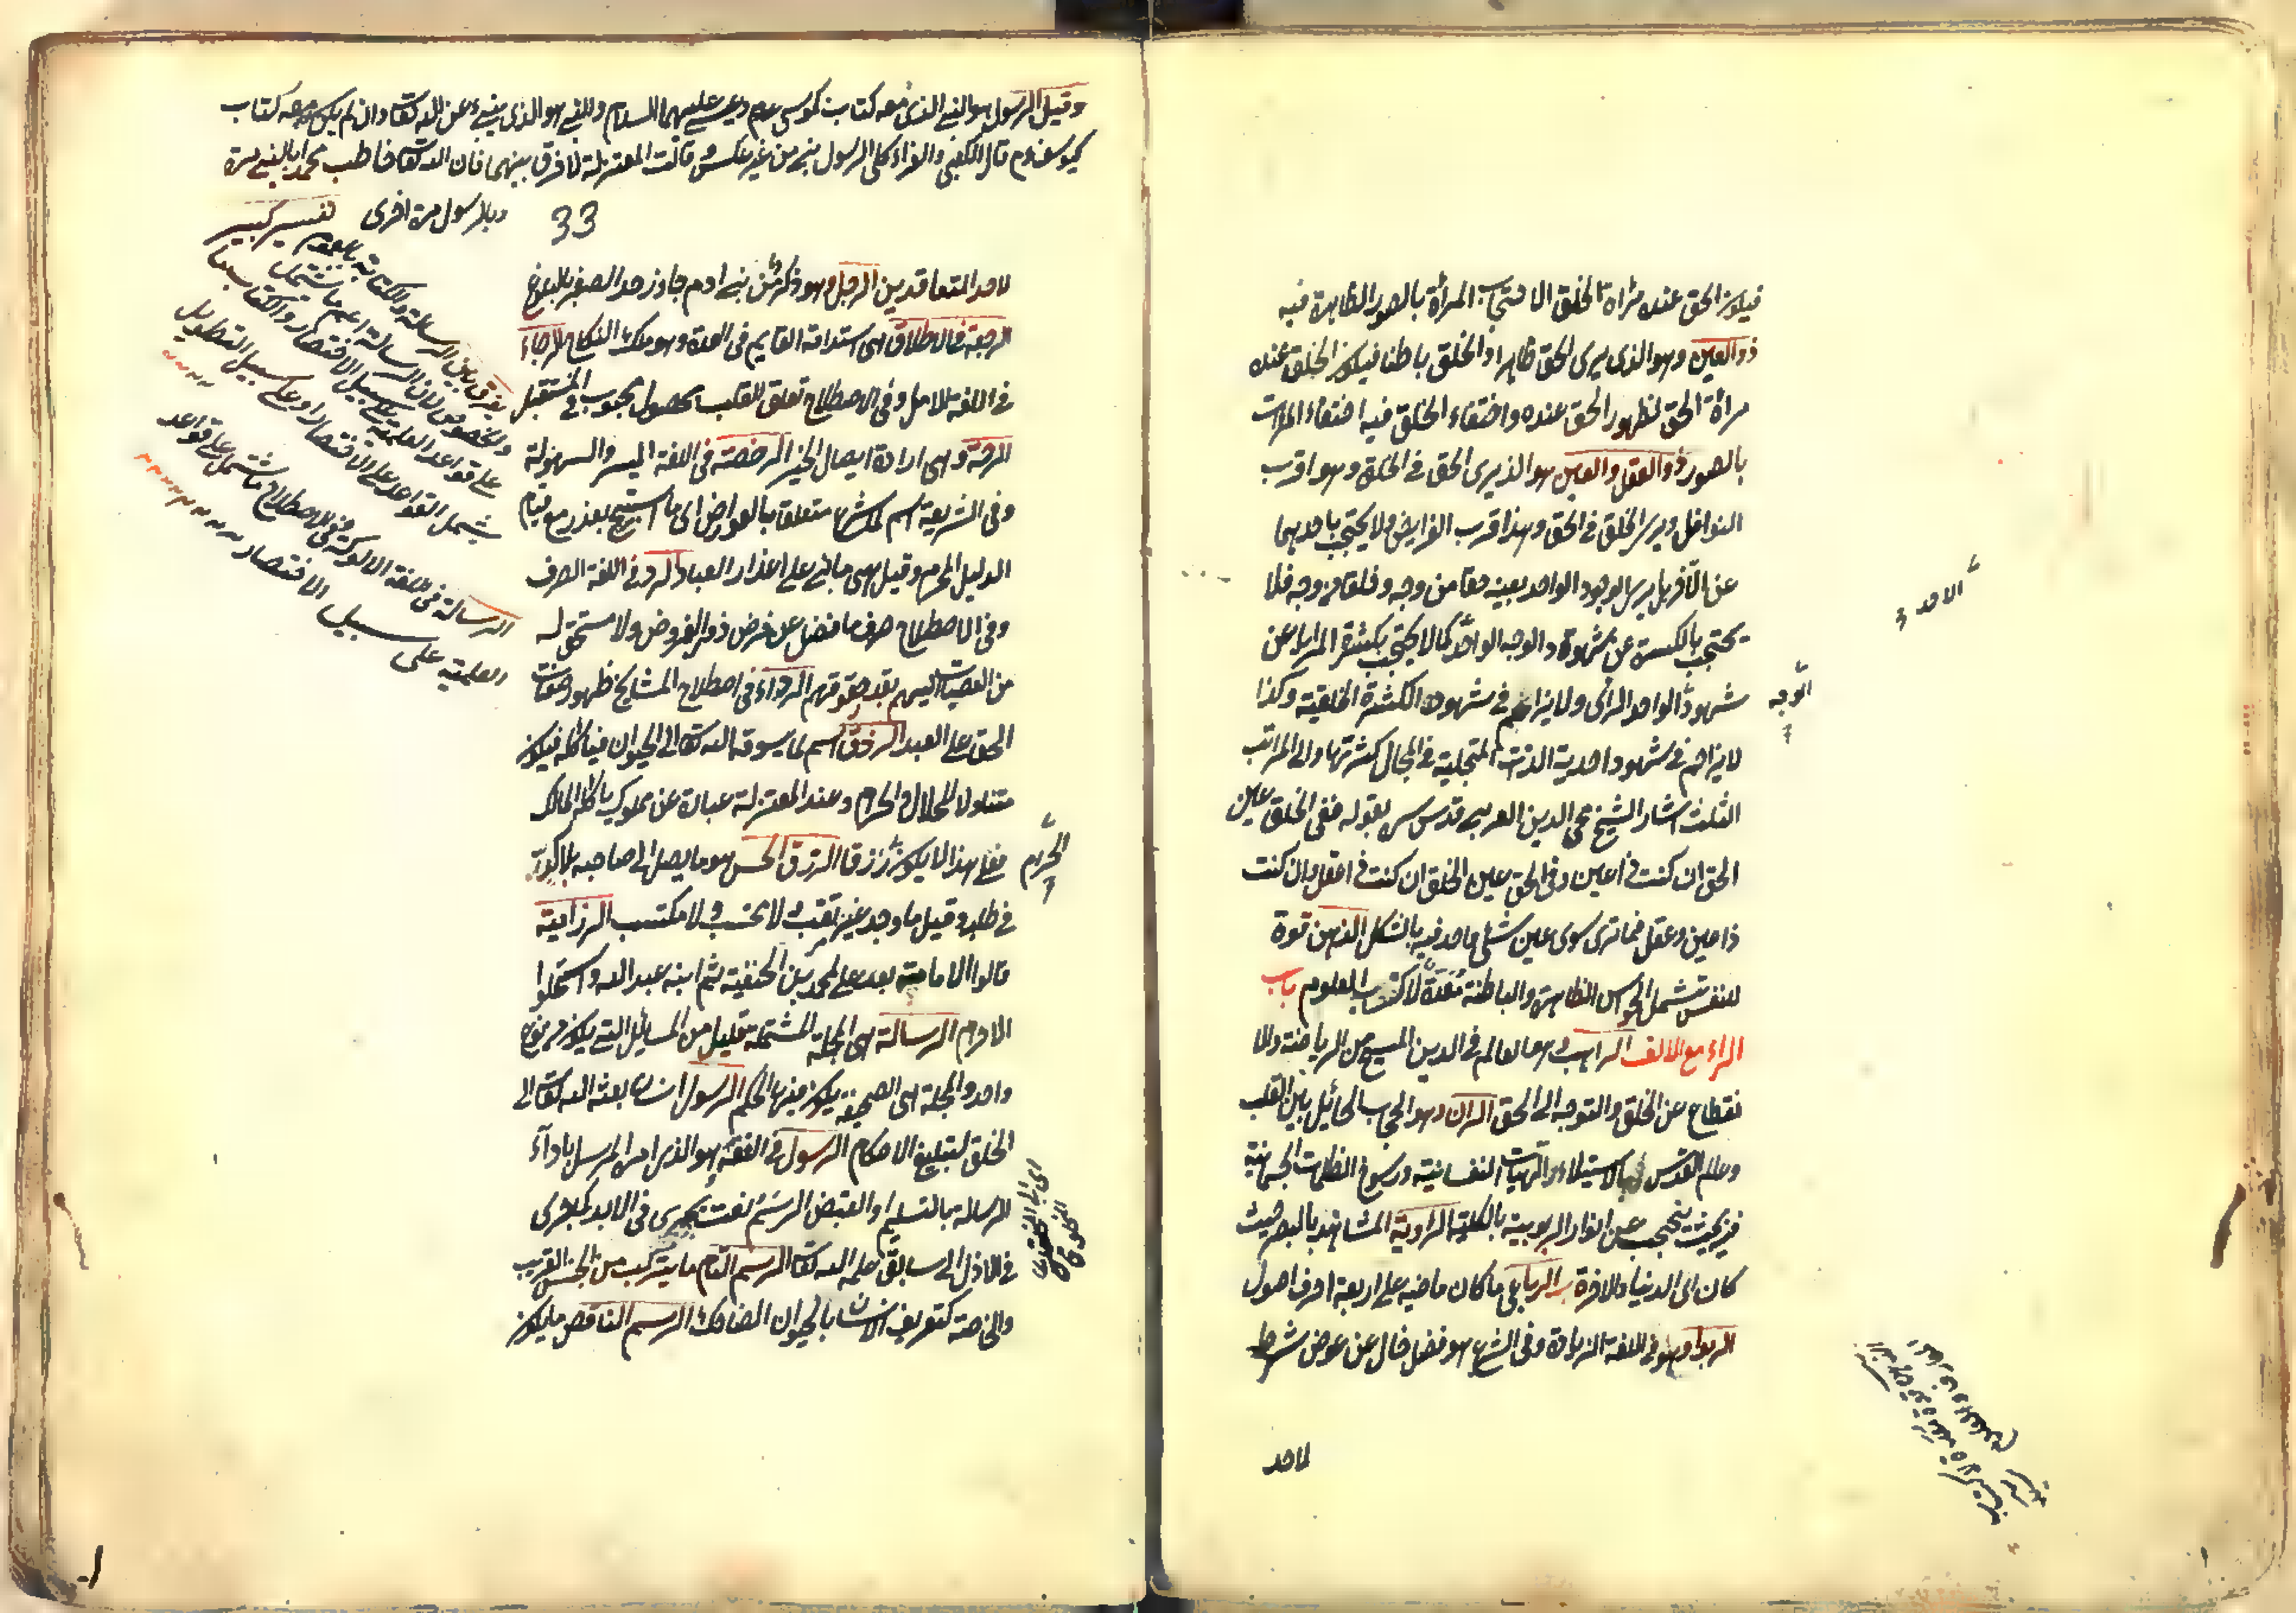 فيكون الحق عنده مرآة الخلق الاحتجاب المرآة بالصور الظاهرة فيه
ذو العين وهو الذي يرى الحق ظاهرا والخلق باطنا فيكون الخلق عنده
مرآة الحق لظهور الحق عنده واختفاء الخلق فيه اختفاء المرآت
بالصور ذو العقل والعين هو الذي يرى الحق في الخلق وهو اقرب
النوافل ويرى الخلق في الحق وهذا قرب الفرايض ولا يحتجب باحديهما
عن الآخر بل يرى الوجود الواحد بعينه حقا من وجه وخلقا من وجه فلا
يحتجب بالكثرة عن شهود الوجه الواحد كما لا يحتجب بكثرة المرايا عن
شهود الواحد الرائى ولا يزاحم في شهود الكثرة الخلقية وكذا
لا يزاحم في شهود احدية الذات المتجلية في المجالى كثرتها والى المراتب
الثلث اشار الشيخ محي الدين العربي قدس سره بقوله ففي الخلق عين
الحق ان كنت ذا عين وفي الحق عين الخلق ان كنت ذا عقل وان كنت
ذا عين وعقل فما ترى سوى عين شئ واحد فيه بالشكل الذهن قوة
للنفس تشمل الحواس الظاهرة والباطنة معدة لاكتساب العلوم باب
الراء مع الالف الراهب هو العالم في الدين المسيحي من الرياضة والا
نقطاع عن الخلق والتوجه الى الحق الران هو الحجاب الحائل بين القلب
وعالم القدس باستيلاء الهيآت النفسانية ورسوخ الظلمات الجسمانية
فيه بحيث ينحجب عن انوار الربوبية بالكلية الرؤية المشاهدة بالبصر حيث
كان اى الدنيا والآخرة الرباعي ما كان ماضيه على اربعة احرف اصول
الربوا وهو في اللغة الزيادة وفي الشرع هو فضل خال عن عوض شرط
لاحد
الاحد
الوجه
وقيل الرسول هو النبي الذي معه كتاب كموسى عم وعيسى عليهما السلام والنبي هو الذي ينبئ عن الله تعالى وان لم يكن معه كتاب
كيوسف عم قال الكلبي والفراء كل رسول نبي من غير عكس وقالت المعتزلة لا فرق بينهما فان الله تعالى خاطب محمدا بالنبي مرة
وبالرسول مرة اخرى تفسير كبير
33
لاحد المتعاقدين الرجل وهو ذكر من بني ادم جاوز حد الصغر بالبلوغ
الرجعة في الطلاق هي استدامة القايم في العدة وهو ملك النكاح الرجاء
في اللغة الامل وفي الاصطلاح تعلق القلب بحصول محبوب في المستقبل
الرحمة وهي ارادة ايصال الخير الرخصة في اللغة اليسر والسهولة
وفي الشريعة اسم لما شرع متعلقا بالعوارض اى ما استبيح بعذر مع قيام
الدليل المحرم وقيل هي ما بني على اعذار العباد الرد في اللغة الصرف
وفي الاصطلاح صرف ما فضل عن فرض ذوى الفروض ولا مستحق له
من العصبات اليهم بقدر حقوقهم الرداء في اصطلاح المشايخ ظهور صفات
الحق على العبد الرزق اسم لما يسوقه الله تعالى الى الحيوان فيأكله فيكون
متناولا للحلال والحرام وعند المعتزلة عبارة عن مملوك يأكله المالك
فعلى هذا لا يكون رزقا الرزق الحسن هو ما يصل الى صاحبه بلا كد
في طلبه وقيل ما وجد غير مرتقب ولا محتسب ولا مكتسب الرزامية
قالوا الامامة بعد على لمحمد بن الحنفية ثم ابنه عبد الله واستحلوا
المحارم الرسالة هي المجلة المشتملة على قليل من المسايل التي يكون من نوع
واحد والمجلة هي الصحيفة يكون فيها الحكم الرسول انسان بعثه الله تعالى الى
الخلق لتبليغ الاحكام الرسول في الفقه هو الذي امره المرسل باداء
الرسالة بالتسليم او القبض الرسم نعت يجري في الابد بما جرى
في الازل اى سابق علمه الله تعالى الرسم التام ما يتركب من الجنس القريب
والخاصة كتعريف الانسان بالحيوان الضاحك الرسم الناقص ما يكون
الحرام
يفرق بين الرسالة والكتاب بالعموم
والخصوص لان الرسالة اعم ما تشتمل
على قواعد العلمية على سبيل الاختصار والكتاب
يشمل القواعد على الاختصار او على سبيل التطويل
الرسالة في اللغة الالوكة وفي الاصطلاح ما تشتمل على قواعد
العلمية على سبيل الاختصار